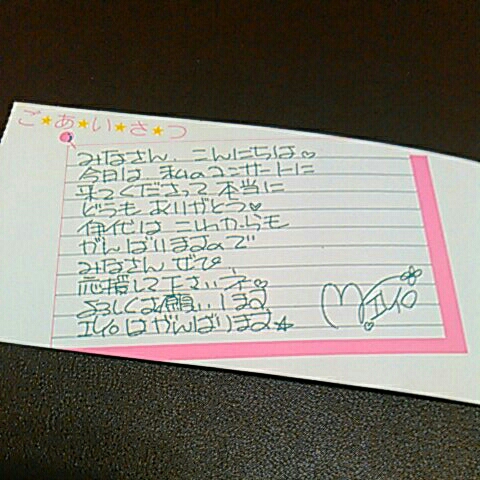 ご★あ★い★さ★つ
みなさん、こんにちは♡
今日は 私のコンサートに
来てくださって 本当に
どうも ありがとう♡
伊代は これからも
がんばりますので
みなさん ぜひ
応援して下さいネ♡
よろしくお願いします
エイロはがんばります☆